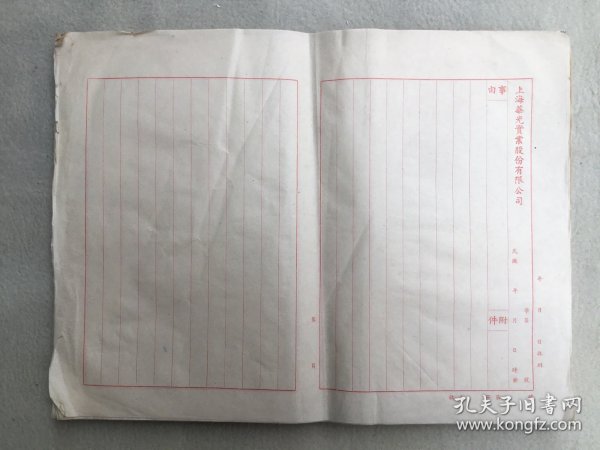 上海華光實業股份有限公司
事由
附件
民國 年 月 日
年 月 日
字第 號
第 頁
孔夫子旧书网
www.kongfz.com